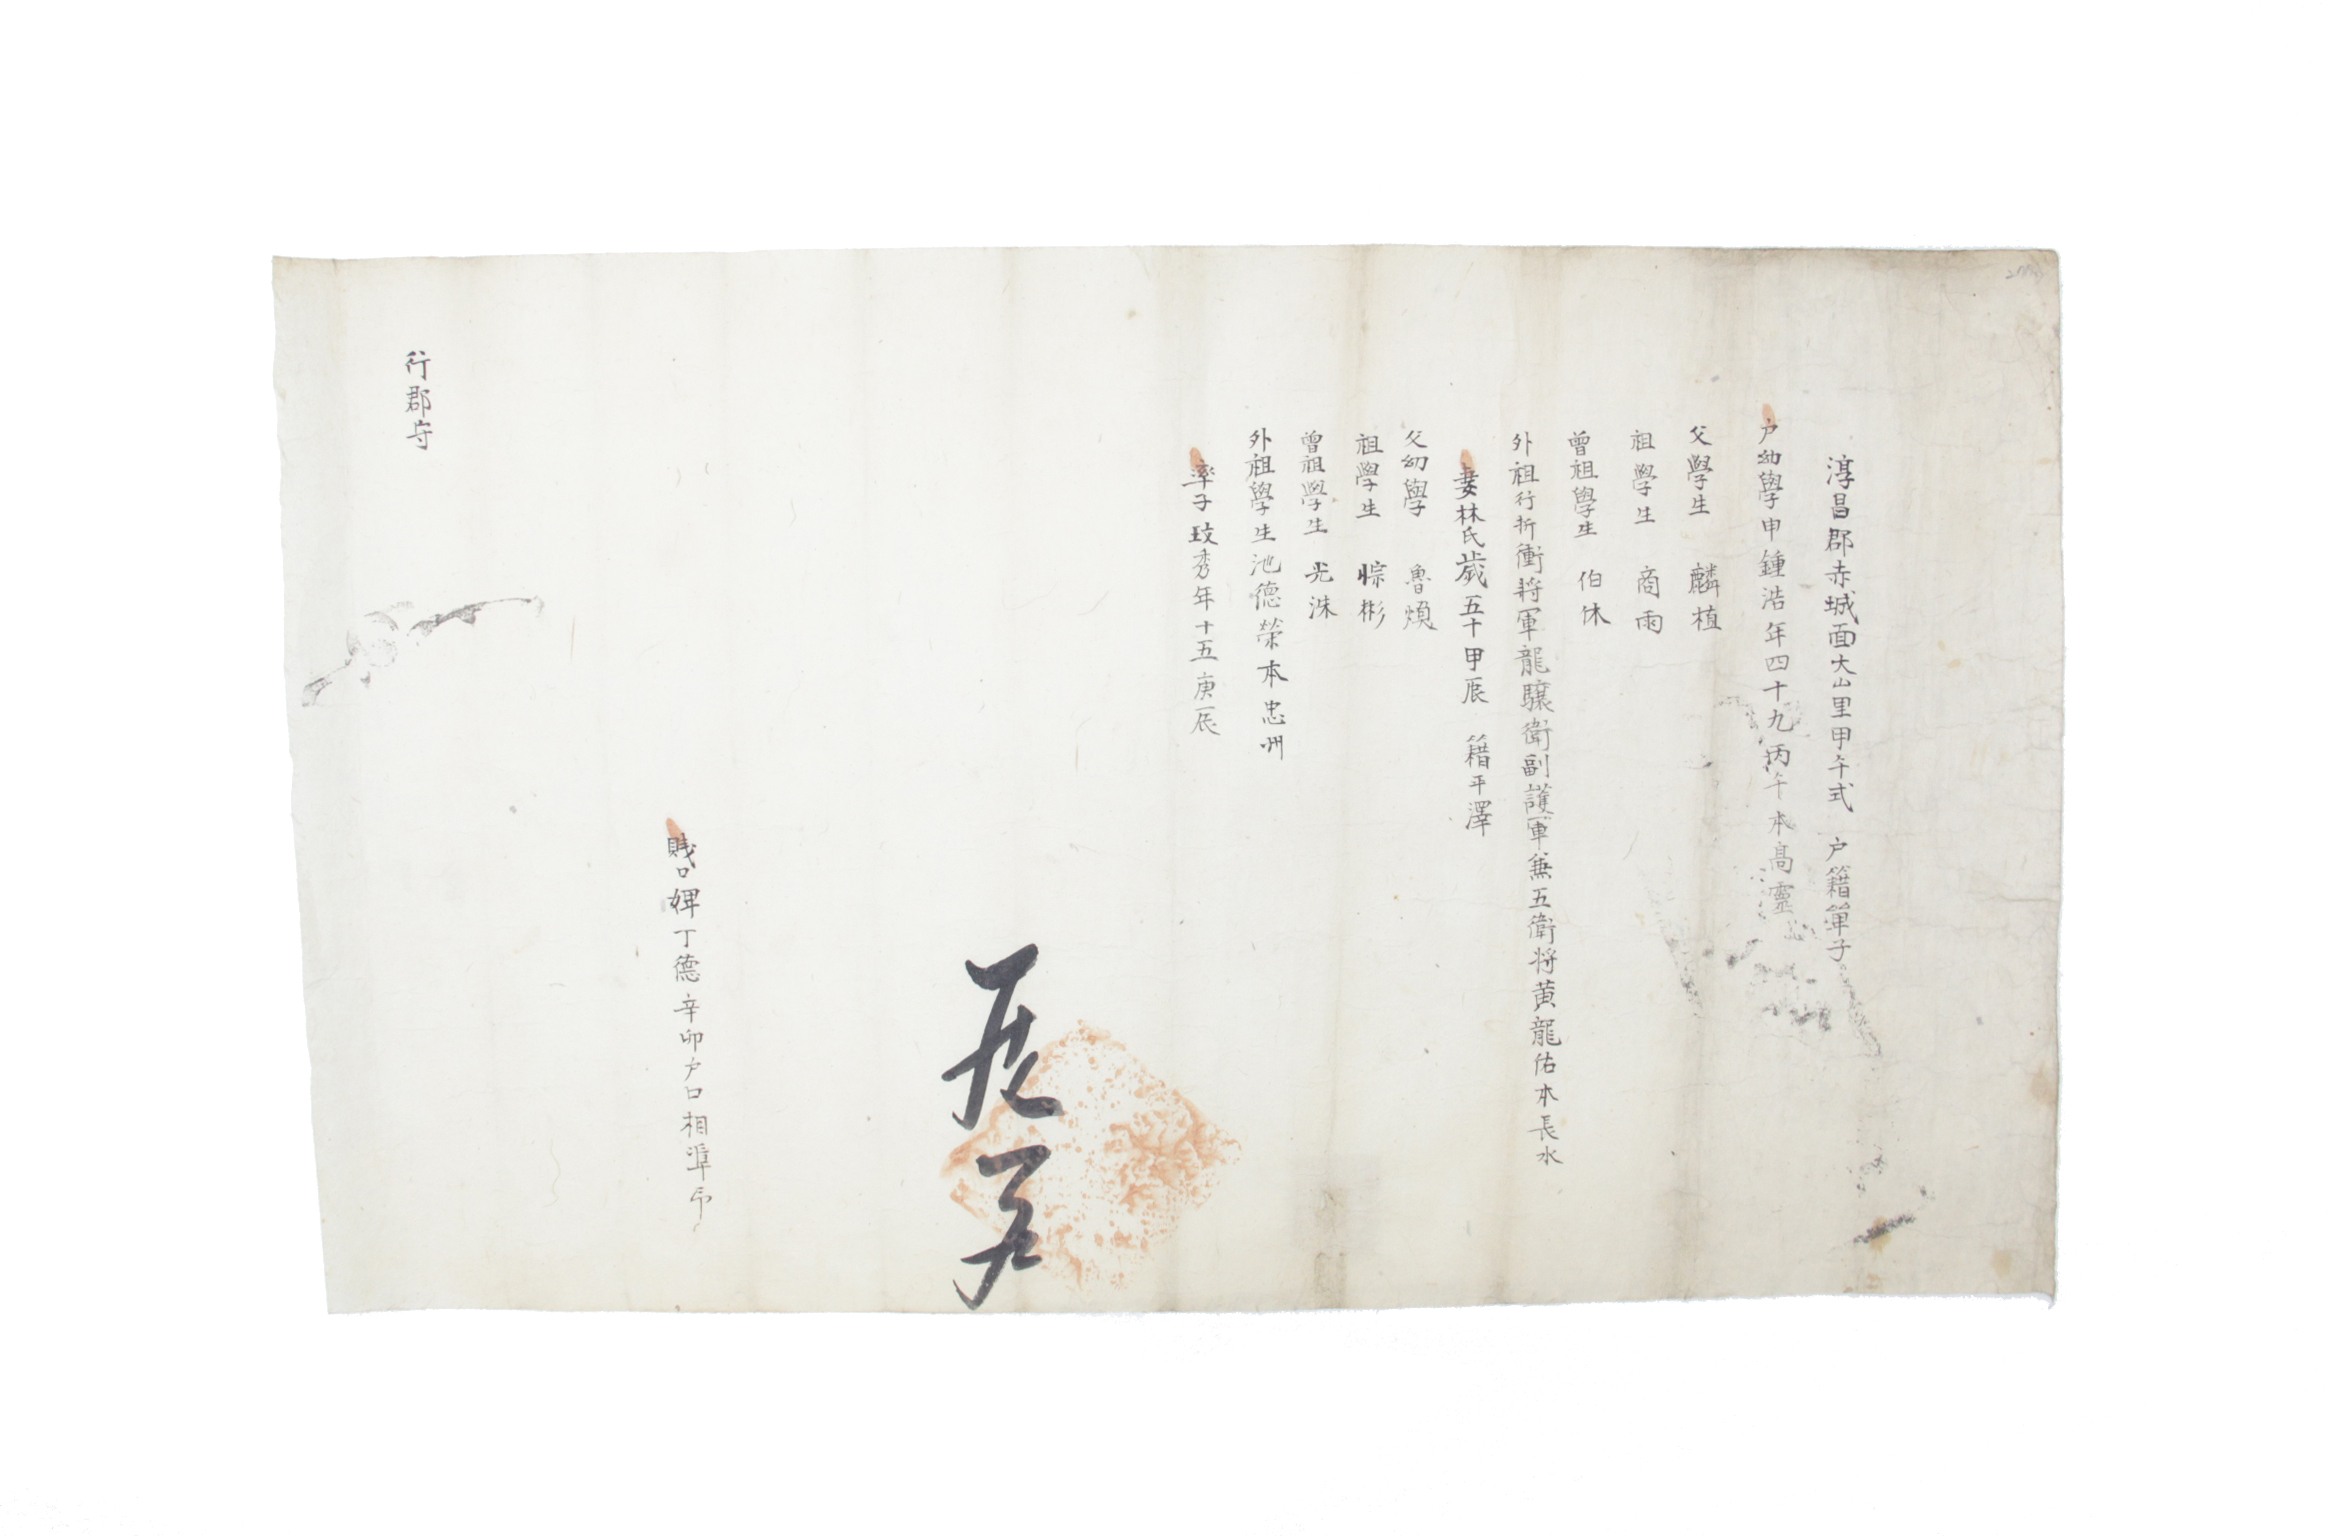 淳昌郡赤城面大山里甲午式 户籍單子
户幼學申鍾浩年四十九丙午本高靈
父學生 麟植
祖學生 商雨
曾祖學生 伯休
外祖行折衝將軍龍驤衛副護軍兼五衛將黃龍佑本長水
妻林氏歲五十甲辰 籍平澤
父幼學 魯煩
祖學生 悰彬
曾祖學生 光洙
外祖學生池德榮本忠州
率子玟秀年十五庚辰
賤口婢丁德辛卯户口相準印
行郡守